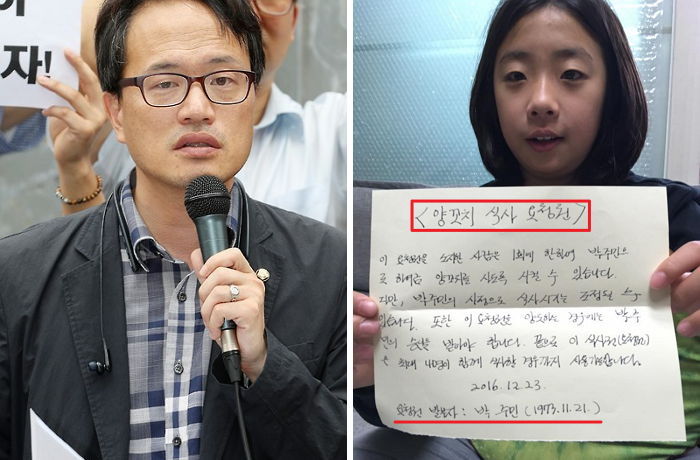 자!
<양꼬치 식사 요청권>
이 요청권을 소지한 사람은 1회에 한하여 박주민으
로 하여금 양꼬치를 사도록 시킬 수 있습니다.
다만, 박주민의 사정으로 식사시기는 조정될 수
있습니다. 또한 이 요청권을 양도하는 경우에는 박주
민의 승낙을 받아야 합니다. 끝으로 이 식사권(요청권)
은 최대 4명이 함께 식사할 경우까지 사용가능합니다.
2016.12.23.
요청권 발부자 : 박 주민 (1973.11.21.)